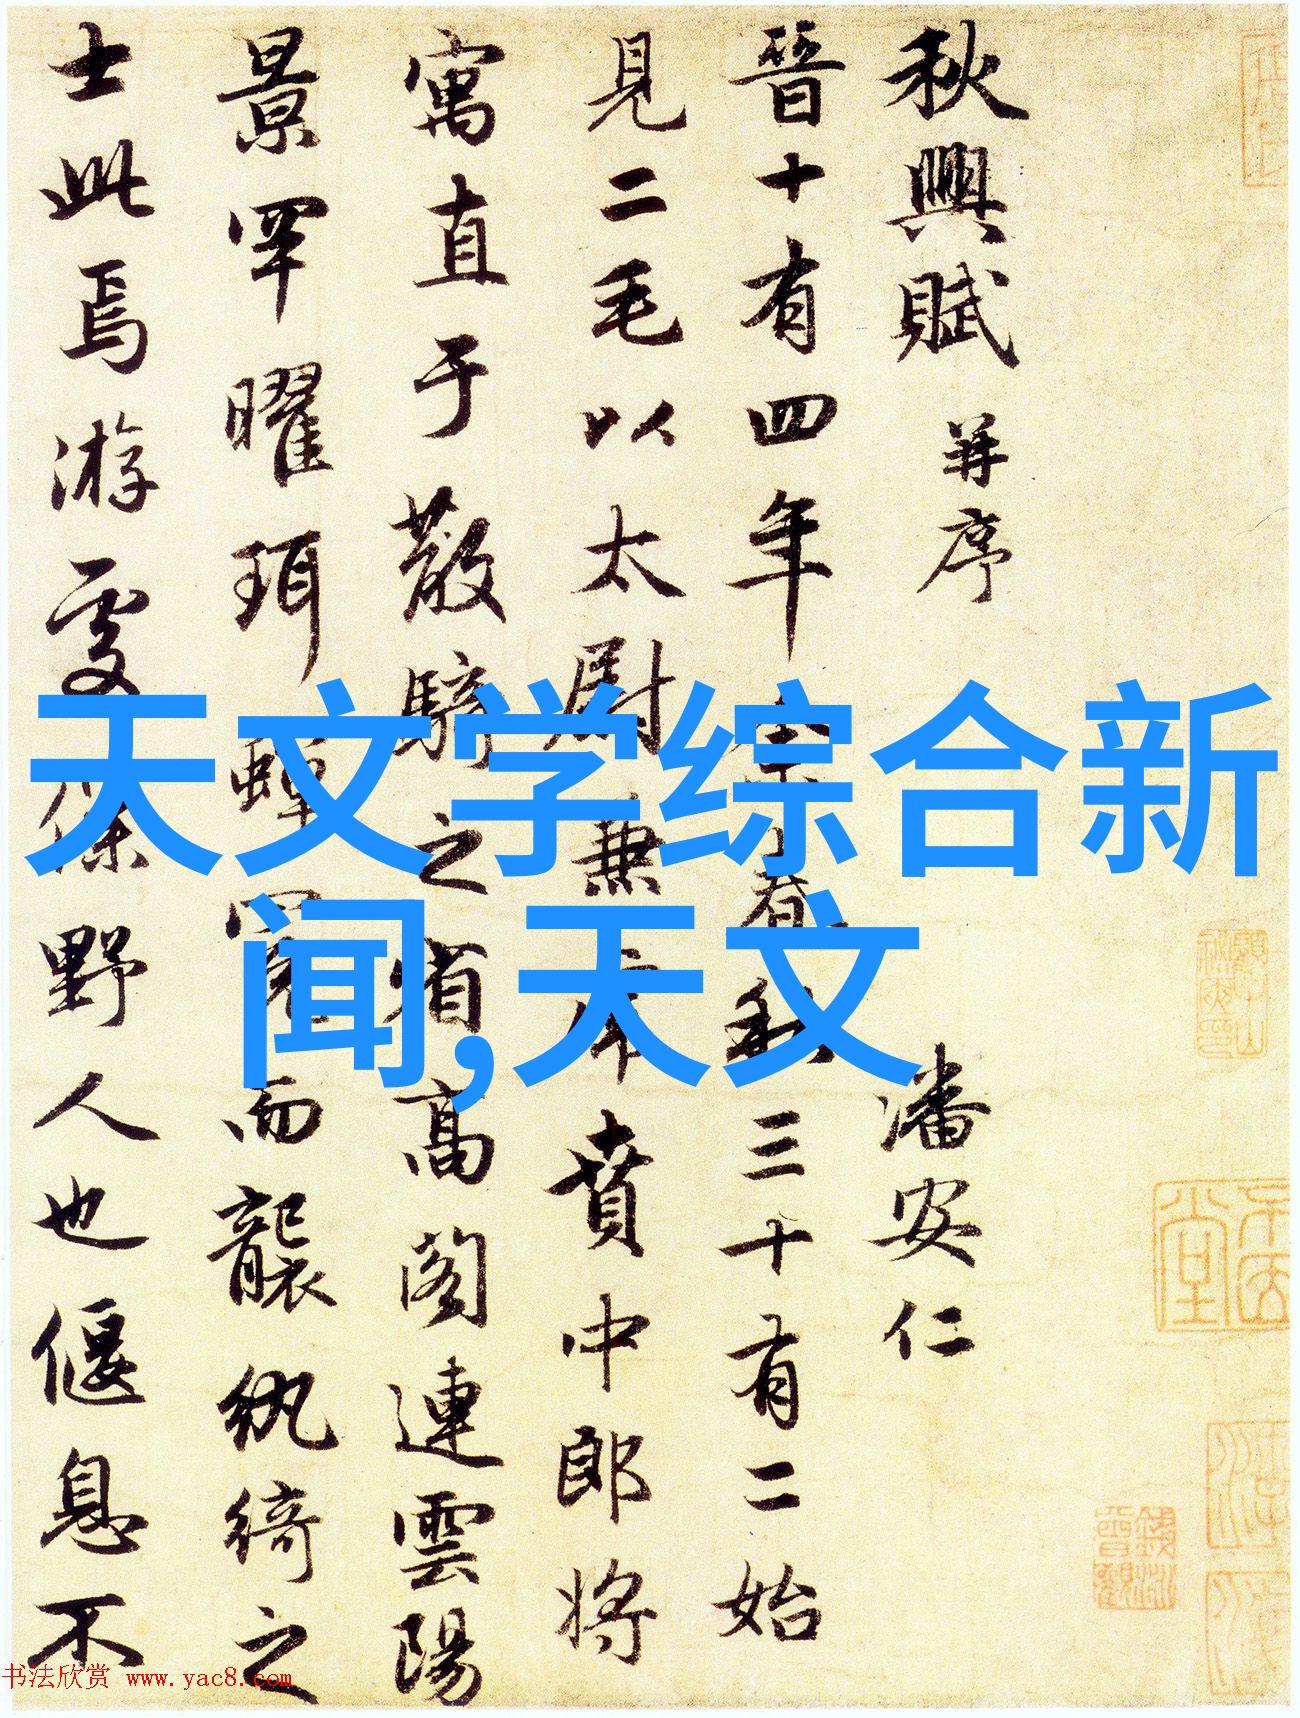 秋興賦 并序 潘安仁
晉十有四年余春秋三十有二始
見二毛以太尉兼虎賁中郎将
寓直于散騎之省高閣連雲陽
景罕曜珥蟬冕而襲紈綺之
士此焉游處僕野人也偃息不
天文学综合新
闻,天文
书法欣赏 www.yac8.com